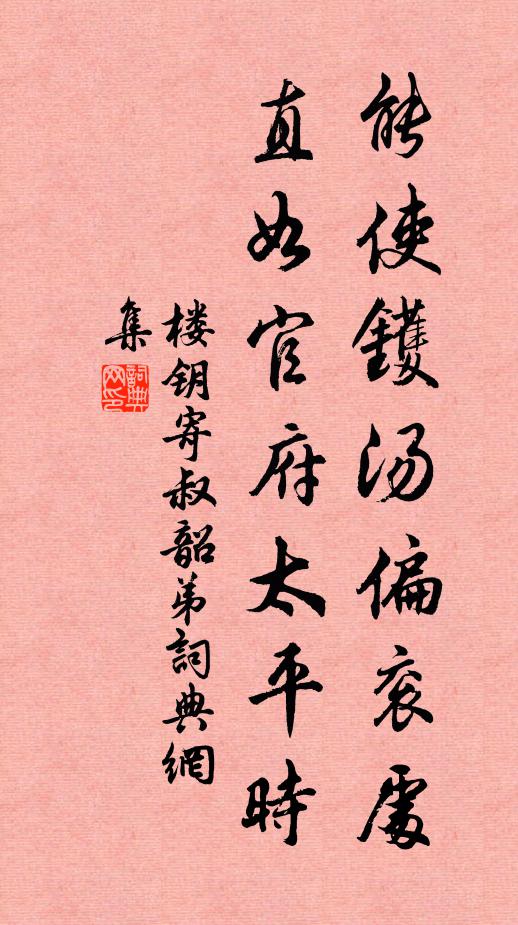 能使鑊湯偏衮處
直如官府太平時
楼钥寄叔韶弟詞典網
集
詞典網印